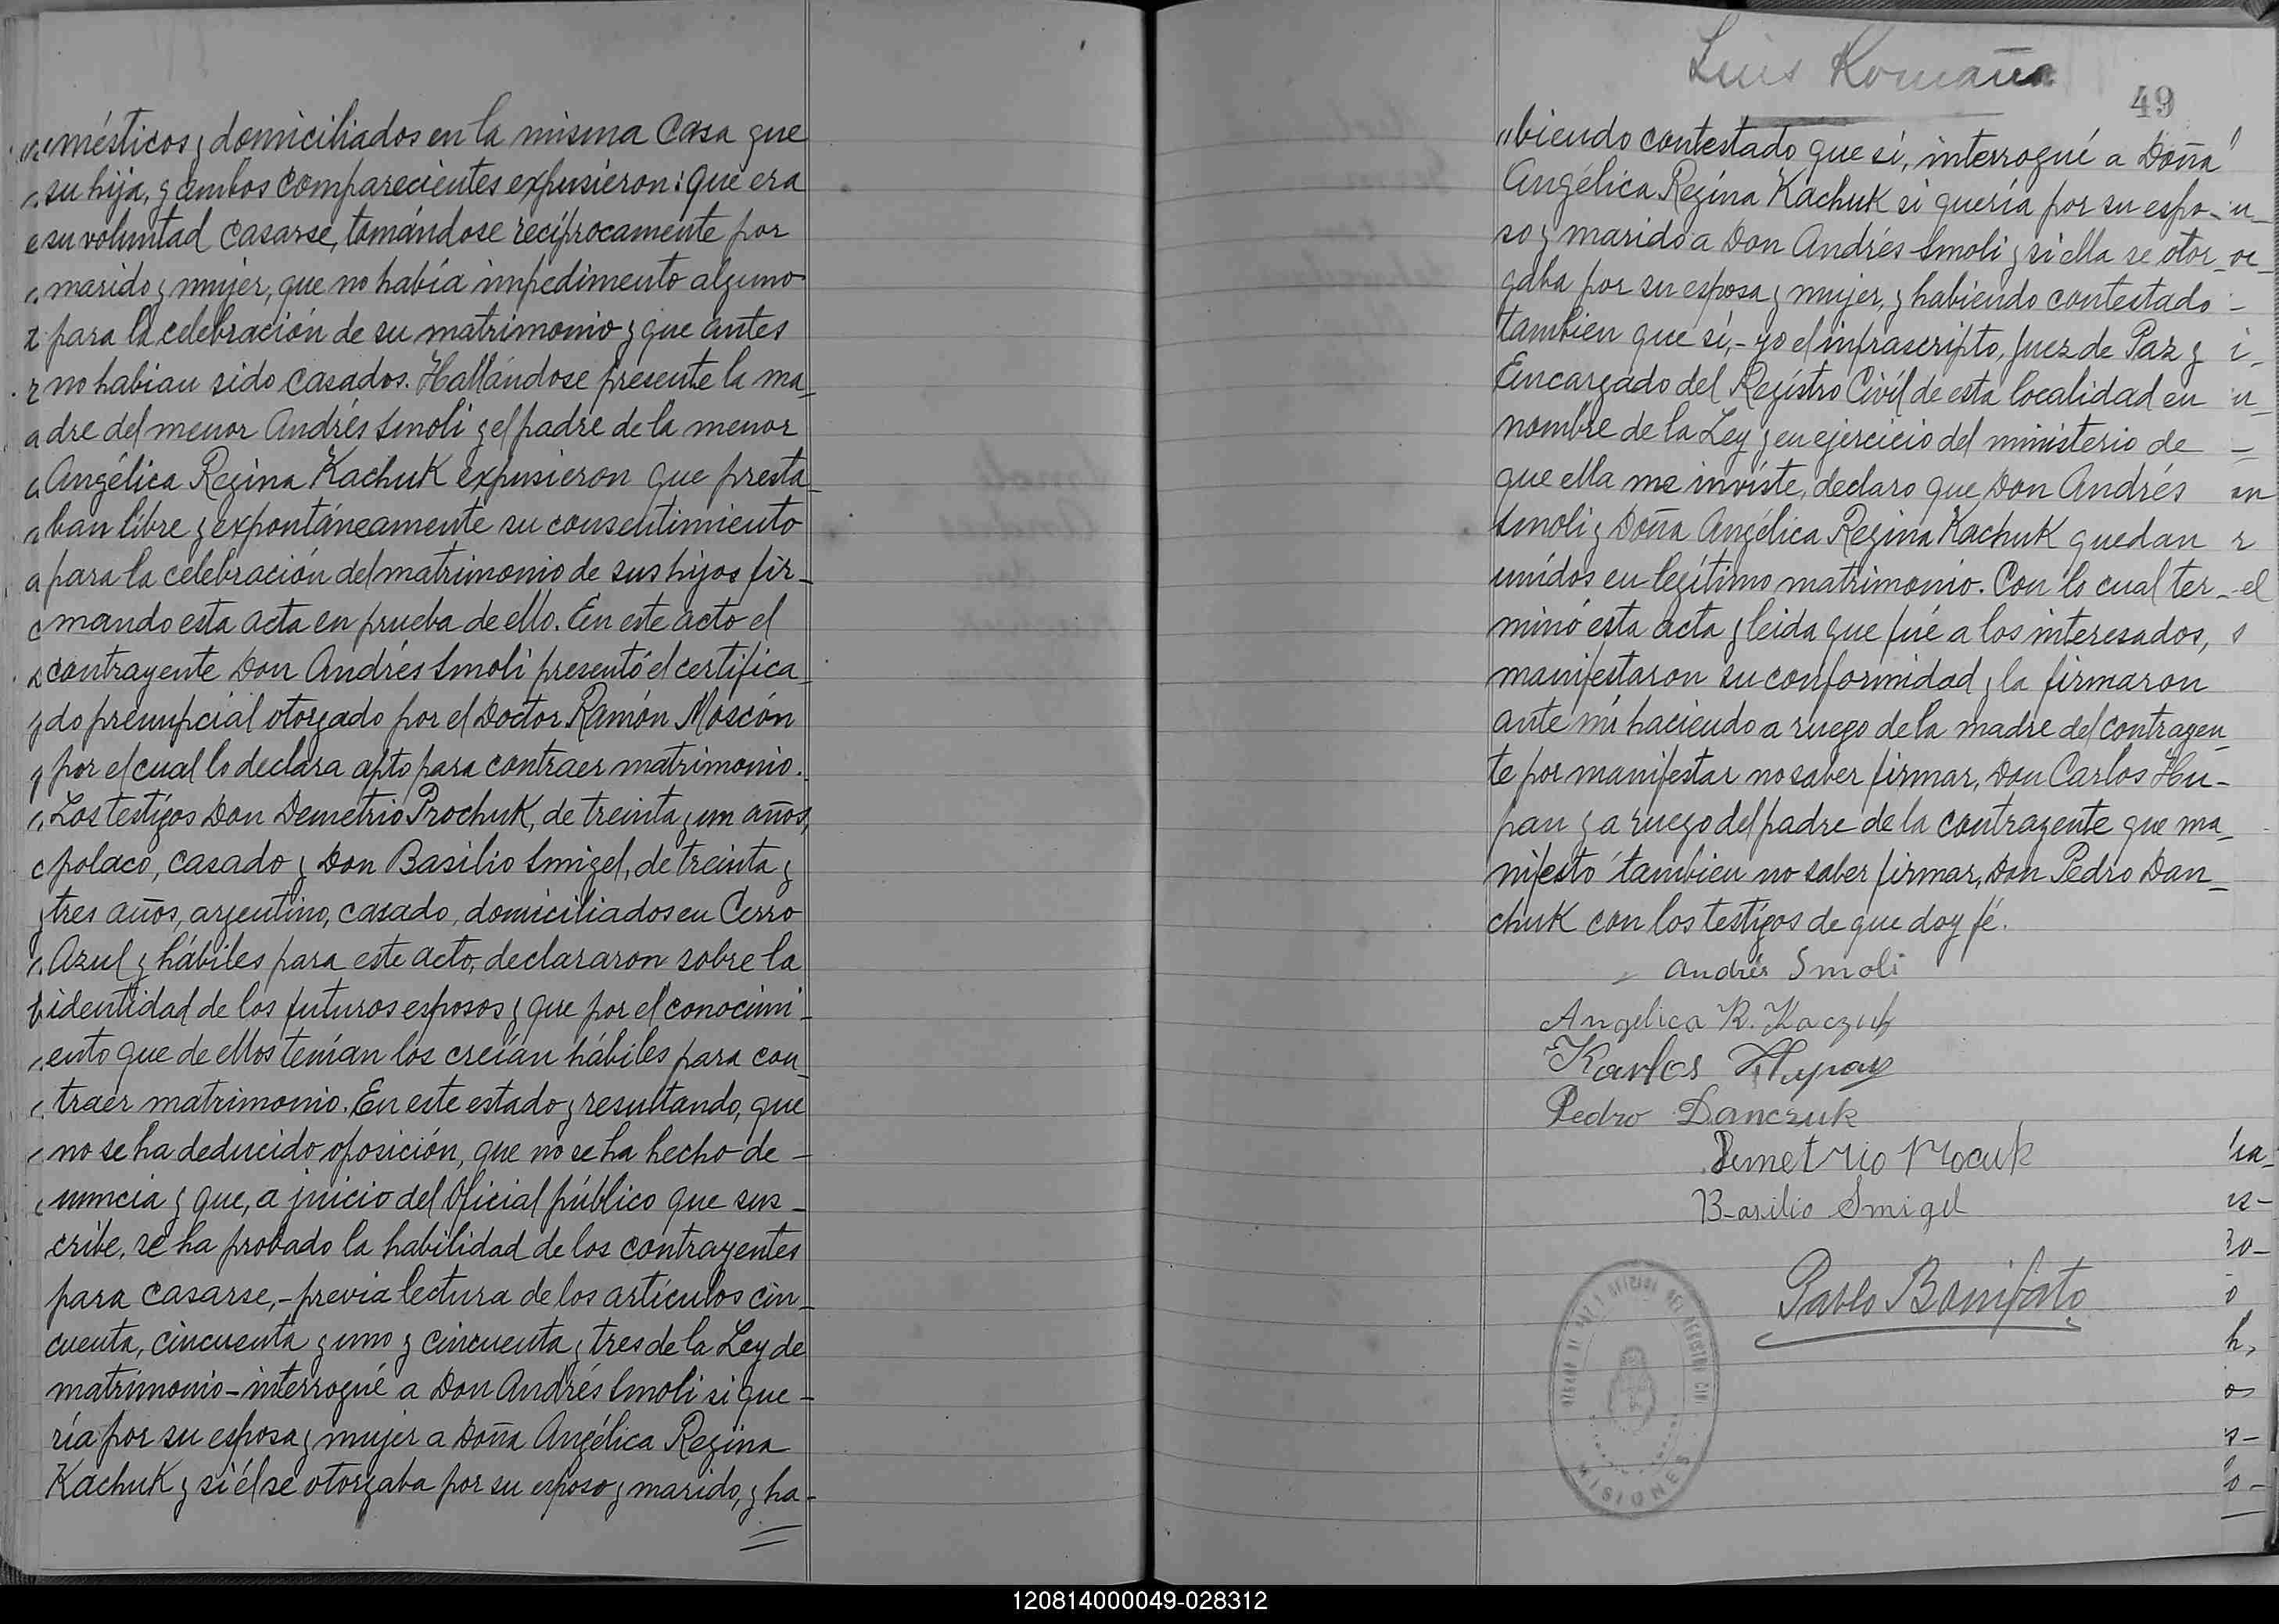 mésticos y domiciliados en la misma casa que
su hija, y ambos comparecientes expusieron: que era
su voluntad casarse, tomándose recíprocamente por
marido y mujer, que no había impedimento alguno
para la celebración de su matrimonio y que antes
no habian sido casados. Hallándose presente la ma_
dre del menor Andrés Smoli y el padre de la menor
Angélica Regina Kachuk expusieron que presta_
ban libre y expontáneamente su consentimiento
para la celebración del matrimonio de sus hijos fir_
mando esta acta en prueba de ello. En este acto el
contrayente Don Andrés Smoli presentó el certifica_
do prenupcial otorgado por el Doctor Ramón Moscón
por el cual lo declara apto para contraer matrimonio.
Los testigos Don Demetrio Prochuk, de treinta y un años,
polaco, casado y Don Basilio Smigel, de treinta y
tres años, argentino, casado, domiciliados en Cerro
Azul y hábiles para este acto, declararon sobre la
identidad de los futuros esposos y que por el conocimi_
ento que de ellos tenían los creían hábiles para con_
traer matrimonio. En este estado y resultando, que
no se ha deducido oposición, que no se ha hecho de_
nuncia y que, a juicio del Oficial público que sus_
cribe, se ha probado la habilidad de los contrayentes
para casarse,- previa lectura de los artículos cin_
cuenta, cincuenta y uno y cincuenta y tres de la Ley de
matrimonio - interrogué a Don Andrés Smoli si que_
ría por su esposa y mujer a Doña Angélica Regina
Kachuk y si él se otorgaba por su esposo y marido, y ha-
Luis Romaña
49
"biendo contestado que si, interrogué a Doña
Angélica Regina Kachuk si quería por su espo_
so y marido a Don Andrés Smoli y si ella se otor_
gaba por su esposa y mujer, y habiendo contestado
tambien que si,- yo el infrascripto, Juez de Paz y
Encargado del Registro Civil de esta localidad en
nombre de la Ley y en ejercicio del ministerio de
que ella me inviste, declaro que Don Andrés
Smoli y Doña Angélica Regina Kachuk quedan
unidos en legítimo matrimonio. Con lo cual ter_
minó esta acta y leida que fué a los interesados,
manifestaron su conformidad y la firmaron
ante mí haciendo a ruego de la madre del contrayen_
te por manifestar no saber firmar, Don Carlos Hu-
pan y a ruego del padre de la contrayente que ma_
nifestó tambien no saber firmar, Don Pedro Dan_
chuk con los testigos de que doy fé.
Andrés Smoli
Angelica R. Kaczuk
Karlos Hupay
Pedro Danczuk
Demetrio Procuk
Basilio Smigel
Pablo Bonifato
MISIONES
120814000049-028312